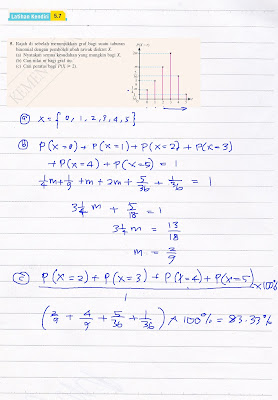 Latihan Kendiri 5.7
Rajah di sebelah menunjukkan graf bagi suatu taburan
binomial dengan pemboleh ubah rawak diskret X.
(a) Nyatakan semua kesudahan yang mungkin bagi X.
(b) Cari nilai m bagi graf itu.
(c) Cari peratus bagi P(X ≥ 2).
P(X = r)
(a) X = { 0, 1, 2, 3, 4, 5 }
(b) P(X=0) + P(X=1) + P(X=2) + P(X=3)
+ P(X=4) + P(X=5) = 1
1/4 m + 1/9 + m + 2m + 5/36 + 1/36 = 1
3 1/4 m + 5/18 = 1
3 1/4 m = 13/18
m = 2/9
(c) P(X=2) + P(X=3) + P(X=4) + P(X=5) × 100%
1
(2/9 + 4/9 + 5/36 + 1/36) × 100% = 83.33%